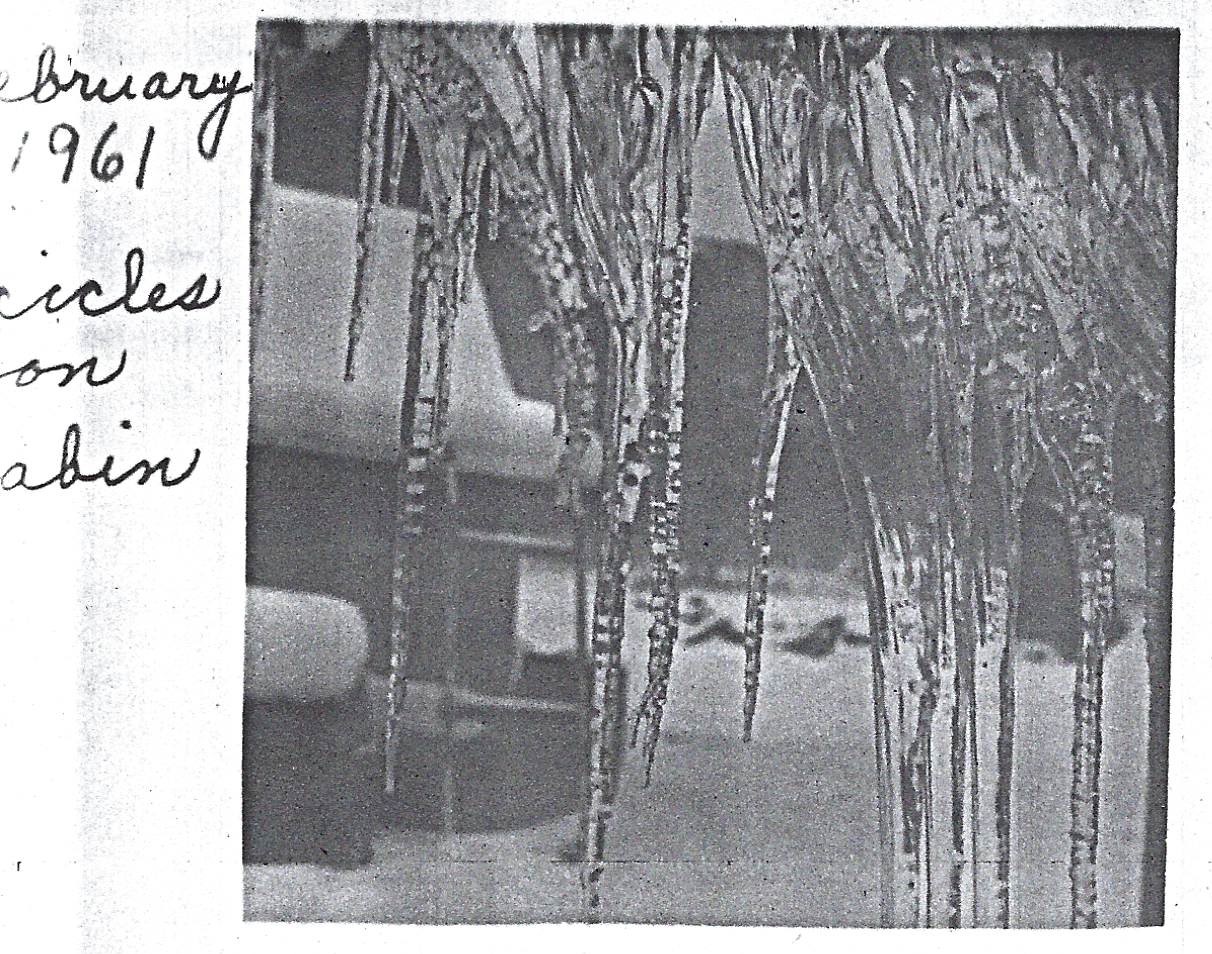 ebruary
1961
cicles
on
abin